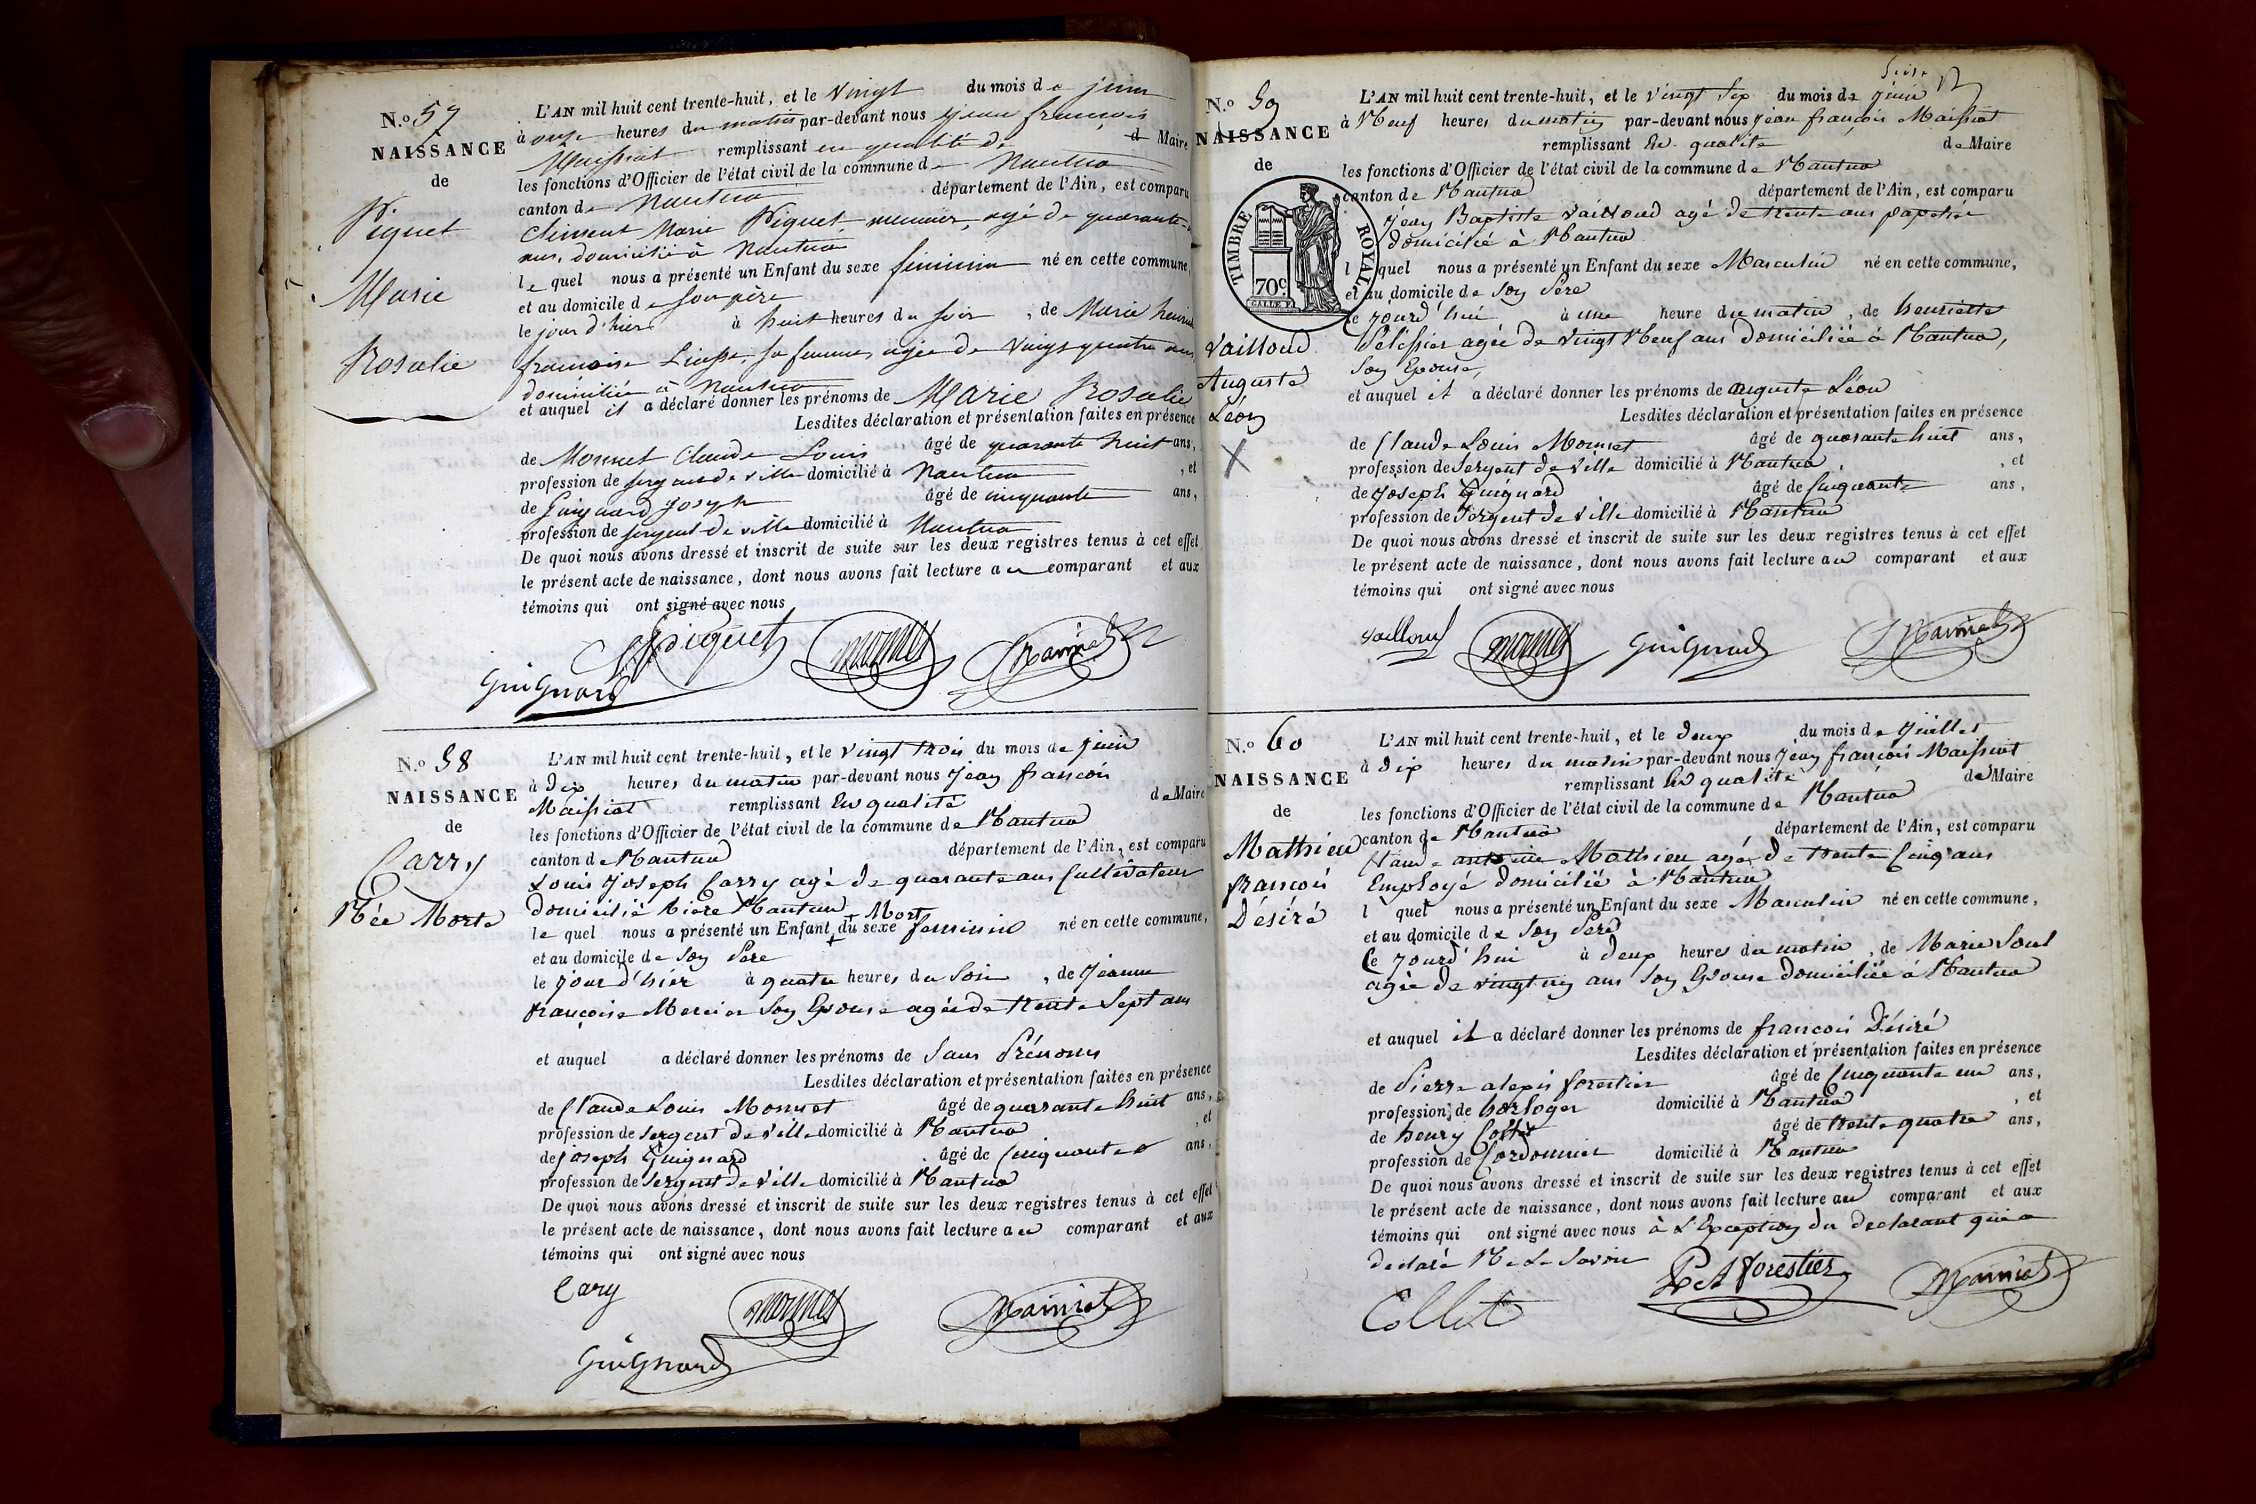 N.º 57
NAISSANCE
de
Piguet
Marie
Rosalie
L'AN mil huit cent trente-huit, et le vingt du mois de juin
à onze heures du matin par-devant nous jean françois
Maissiat remplissant en qualité de Maire
les fonctions d'Officier de l'état civil de la commune de Nantua
canton de Nantua département de l'Ain, est comparu
Clément Marie Piguet meunier, agé de quarante
ans, domicilié à Nantua
le quel nous a présenté un Enfant du sexe féminin né en cette commune,
et au domicile de son père
le jour d'hier à huit heures du soir, de Marie
françoise sa femme, agée de vingt quatre ans
domiciliée à Nantua
et auquel il a déclaré donner les prénoms de Marie Rosalie
Lesdites déclaration et présentation faites en présence
de Monnet Claude Louis âgé de quarante huit ans,
profession de sergent de ville domicilié à Nantua, et
de Guignard Joseph âgé de cinquante ans,
profession de sergent de ville domicilié à Nantua
De quoi nous avons dressé et inscrit de suite sur les deux registres tenus à cet effet
le présent acte de naissance, dont nous avons fait lecture au comparant et aux
témoins qui ont signé avec nous
Piguet Monnet Maissiat
Guignard
N.º 58
NAISSANCE
de
Carry
Née Morte
L'AN mil huit cent trente-huit, et le vingt trois du mois de juin
à Dix heures du matin par-devant nous Jean françois
Maissiat remplissant En qualité de Maire
les fonctions d'Officier de l'état civil de la commune de Nantua
canton de Nantua département de l'Ain, est comparu
Louis Joseph Carry agé de quarante ans Cultivateur
domicilié Nantua
+ Mort
le quel nous a présenté un Enfant + du sexe féminin né en cette commune,
et au domicile de Son Père
le jour d'hier à quatre heures du Soir, de Jeanne
françoise Mercier Son Epouse agée de trente Sept ans
et auquel a déclaré donner les prénoms de Sans Prénoms
Lesdites déclaration et présentation faites en présence
de Claude Louis Monnet âgé de quarante huit ans,
profession de Sergent de Ville domicilié à Nantua, et
de Joseph Guignard âgé de Cinquante ans,
profession de Sergent de Ville domicilié à Nantua
De quoi nous avons dressé et inscrit de suite sur les deux registres tenus à cet effet
le présent acte de naissance, dont nous avons fait lecture au comparant et aux
témoins qui ont signé avec nous
Cary Monnet Maissiat
Guignard
N.º 59
NAISSANCE
de
TIMBRE ROYAL
70c
Vailloud
Auguste
Léon
X
L'AN mil huit cent trente-huit, et le Vingt Six du mois de juin
à Neuf heures du matin par-devant nous Jean françois Maissiat
remplissant En qualité de Maire
les fonctions d'Officier de l'état civil de la commune de Nantua
canton de Nantua département de l'Ain, est comparu
Jean Baptiste Vailloud agé de trente ans papetier
domicilié à Nantua
l quel nous a présenté un Enfant du sexe Masculin né en cette commune,
et au domicile de Son Père
Ce jourd'hui à une heure du matin, de henriette
Pélissier agée de vingt Neuf ans Domiciliée à Nantua,
Son Epouse,
et auquel il a déclaré donner les prénoms de auguste Léon
Lesdites déclaration et présentation faites en présence
de Claude Louis Monnet âgé de quarante huit ans,
profession de Sergent de Ville domicilié à Nantua, et
de Joseph Guignard âgé de Cinquante ans,
profession de Sergent de Ville domicilié à Nantua
De quoi nous avons dressé et inscrit de suite sur les deux registres tenus à cet effet
le présent acte de naissance, dont nous avons fait lecture au comparant et aux
témoins qui ont signé avec nous
Vailloud Monnet Guignard Maissiat
N.º 60
NAISSANCE
de
Mathieu
françois
Désiré
L'AN mil huit cent trente-huit, et le Deux du mois de Juillet
à Dix heures du matin par-devant nous Jean françois Maissiat
remplissant En qualité de Maire
les fonctions d'Officier de l'état civil de la commune de Nantua
canton de Nantua département de l'Ain, est comparu
Claude antoine Mathieu agé de trente Cinq ans
Employé domicilié à Nantua
l quel nous a présenté un Enfant du sexe Masculin né en cette commune,
et au domicile de Son Père
Ce jourd'hui à Deux heures du matin, de Marie
agée de vingt ans Son Epouse domiciliée à Nantua
et auquel il a déclaré donner les prénoms de françois Désiré
Lesdites déclaration et présentation faites en présence
de Pierre alexis forestier âgé de Cinquante un ans,
profession de horloger domicilié à Nantua, et
de henry Collet âgé de trente quatre ans,
profession de Cordonnier domicilié à Nantua
De quoi nous avons dressé et inscrit de suite sur les deux registres tenus à cet effet
le présent acte de naissance, dont nous avons fait lecture au comparant et aux
témoins qui ont signé avec nous à L'Exception du declarant qui a
declaré Ne Le Savoir
Collet P A forestier Maissiat